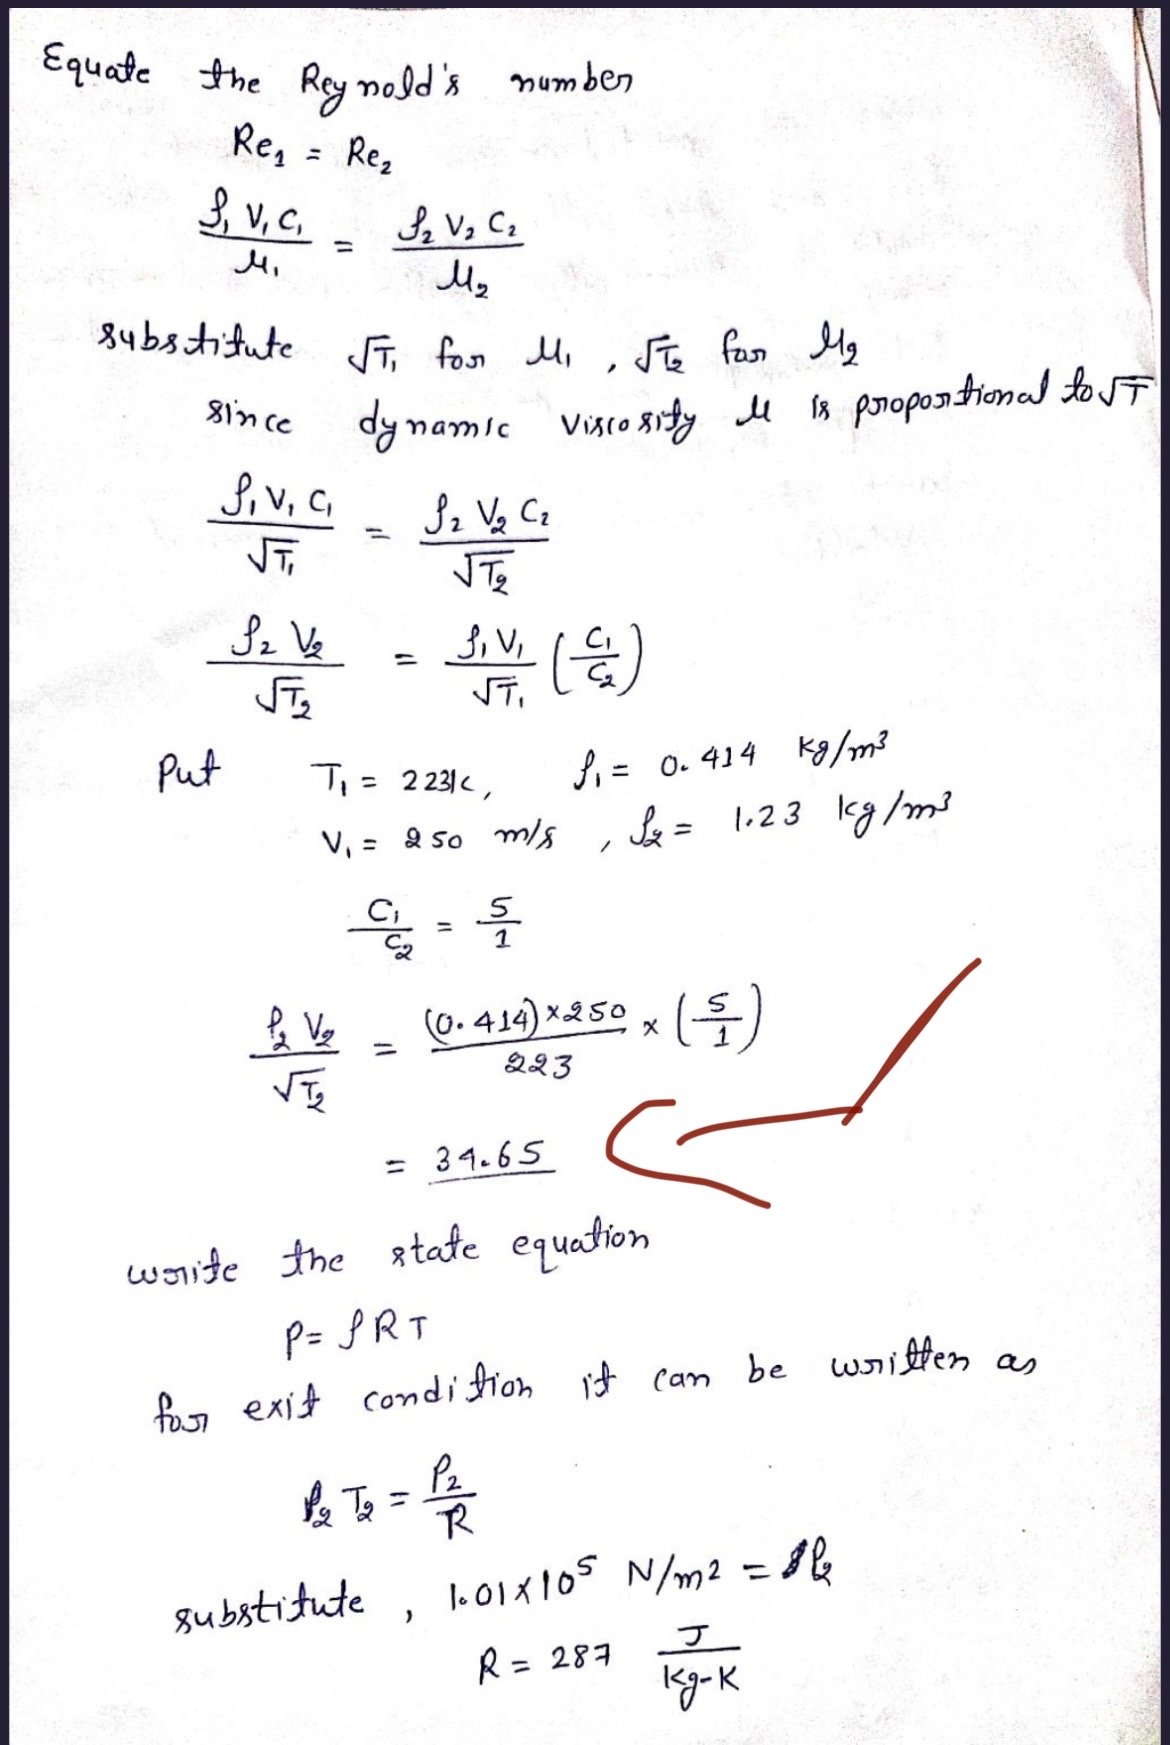 Equate the Reynold's number
Re₁ = Re₂
ρ₁ V₁ C₁ / μ₁ = ρ₂ V₂ C₂ / μ₂
substitute √T₁ for μ₁ , √T₂ for μ₂
since dynamic viscosity μ is proportional to √T
ρ₁ V₁ C₁ / √T₁ = ρ₂ V₂ C₂ / √T₂
ρ₂ V₂ / √T₂ = ρ₁ V₁ / √T₁ (C₁ / C₂)
Put T₁ = 223K, ρ₁ = 0.414 kg/m³
V₁ = 250 m/s , ρ₂ = 1.23 kg/m³
C₁ / C₂ = 5 / 1
ρ₂ V₂ / √T₂ = (0.414) × 250 / 223 × (5 / 1)
= 34.65
write the state equation
P = ρ R T
for exit condition it can be written as
ρ₂ T₂ = P₂ / R
substitute , 1.01 × 10⁵ N/m² = P₂
R = 287 J / kg-K